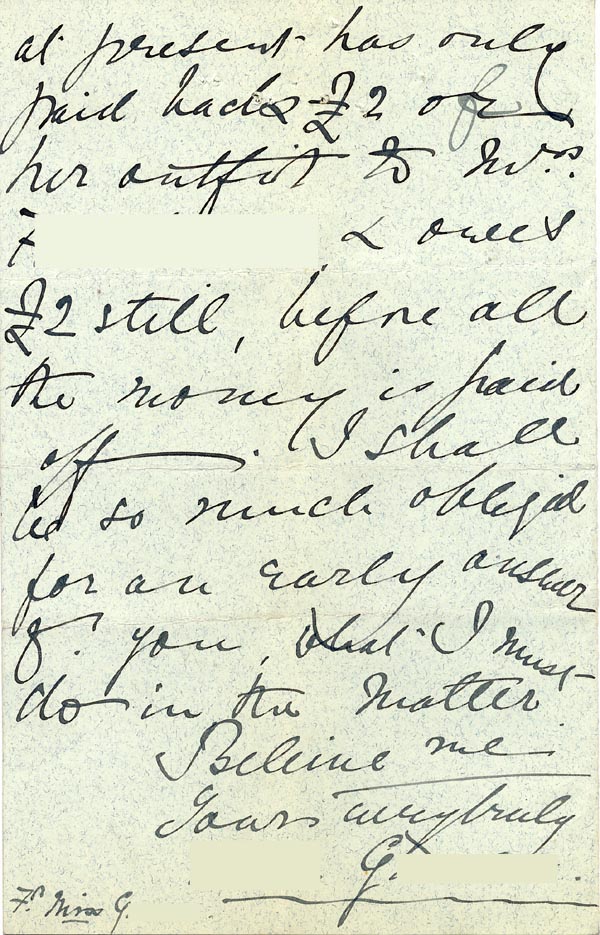 at present has only
paid back £2 of
her outfit to Mrs.
F
& owes
£2 still, before all
the money is paid
off. I shall
be so much obliged
for an early answer
fr. you, what I must
do in the Matter
Believe me
Yours very truly
G.
Fr Miss G.